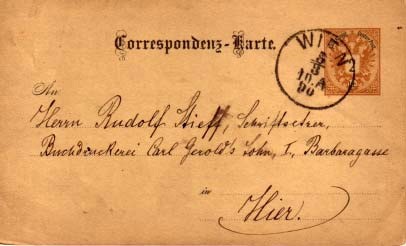 Correspondenz-Karte.
WIEN
An
Herrn Rudolf Stieff, Schriftsetzer,
Buchdruckerei Carl Gerold's Sohn, I., Barbaragasse
in
Hier.